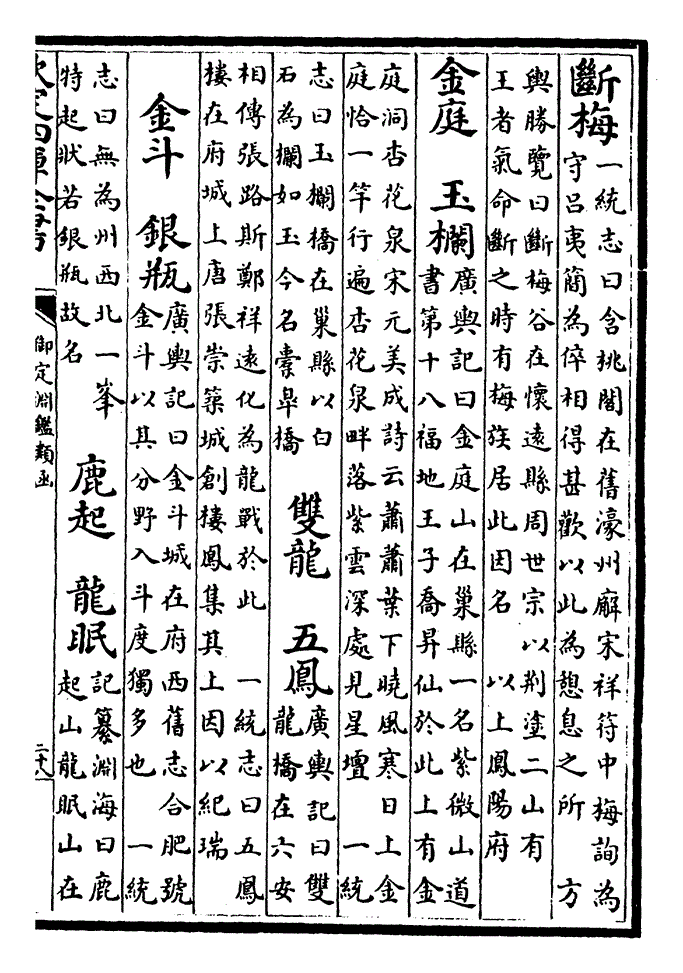 斷梅
一統志曰含桃閣在舊濠州廨宋祥符中梅詢為
守呂夷簡為倅相得甚歡以此為憩息之所　方
輿勝覽曰斷梅谷在懷遠縣周世宗以荆塗二山有
王者氣命斷之時有梅族居此因名　以上鳳陽府
金庭　玉欄
廣輿記曰金庭山在巢縣一名紫微山道
書第十八福地王子喬昇仙於此上有金
庭洞杏花泉宋元美成詩云蕭蕭葉下曉風寒日上金
庭恰一竿行遍杏花泉畔落紫雲深處見星壇　一統
志曰玉欄橋在巢縣以白
石為欄如玉今名橐臯橋
雙龍　五鳳
廣輿記曰雙
龍橋在六安
相傳張路斯鄭祥遠化為龍戰於此　一統志曰五鳳
樓在府城上唐張崇築城創樓鳳集其上因以紀瑞
金斗　銀瓶
廣輿記曰金斗城在府西舊志合肥號
金斗以其分野入斗度獨多也　一統
志曰無為州西北一峯
特起狀若銀瓶故名
鹿起　龍眠
記纂淵海曰鹿
起山龍眠山在
欽定四庫全書
御定淵鑑類函
二十八